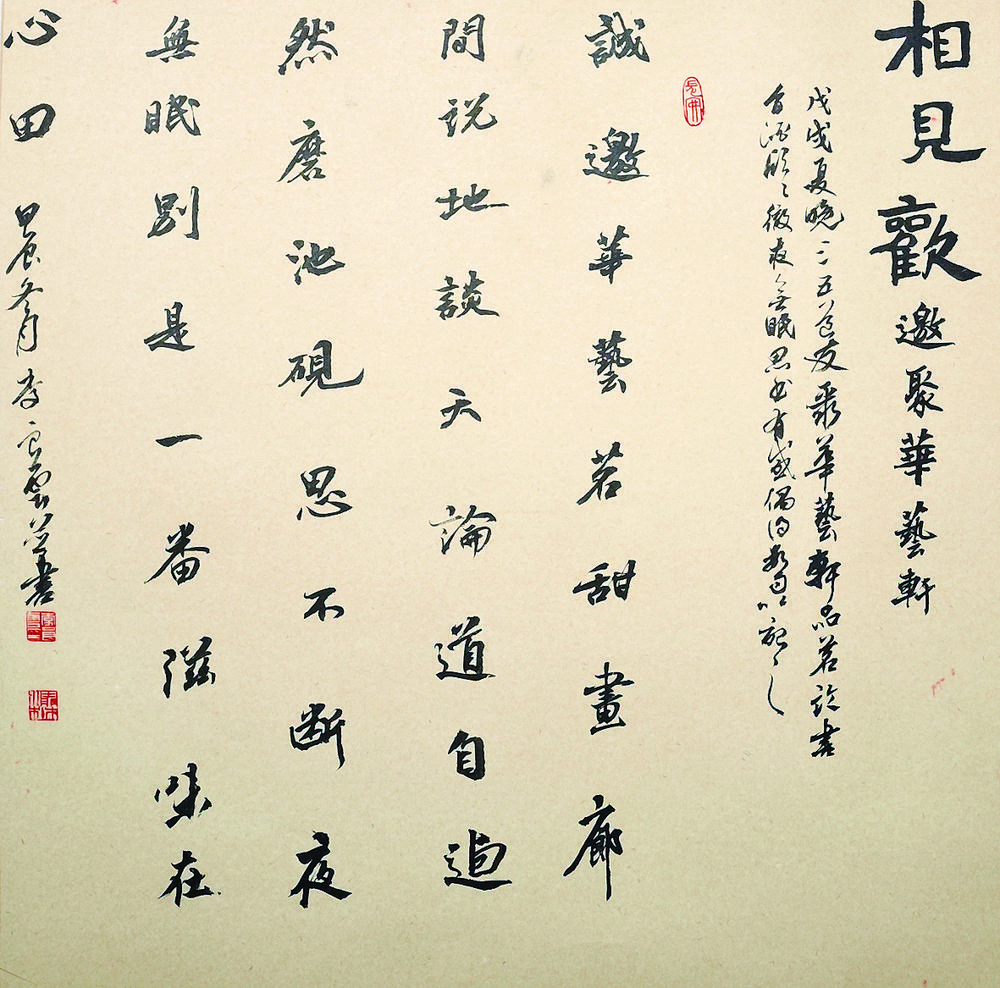 相見歡 邀聚華藝軒
戊戌夏晚三五道友聚華藝軒品茗談書
徹夜無眠思 有感偶得數句以記之
誠邀華藝茗甜畫廊
間説地談天論道自逌
然磨池硯思不断夜
無眠別是一番滋味在
心田 甲辰冬月李 雲 書